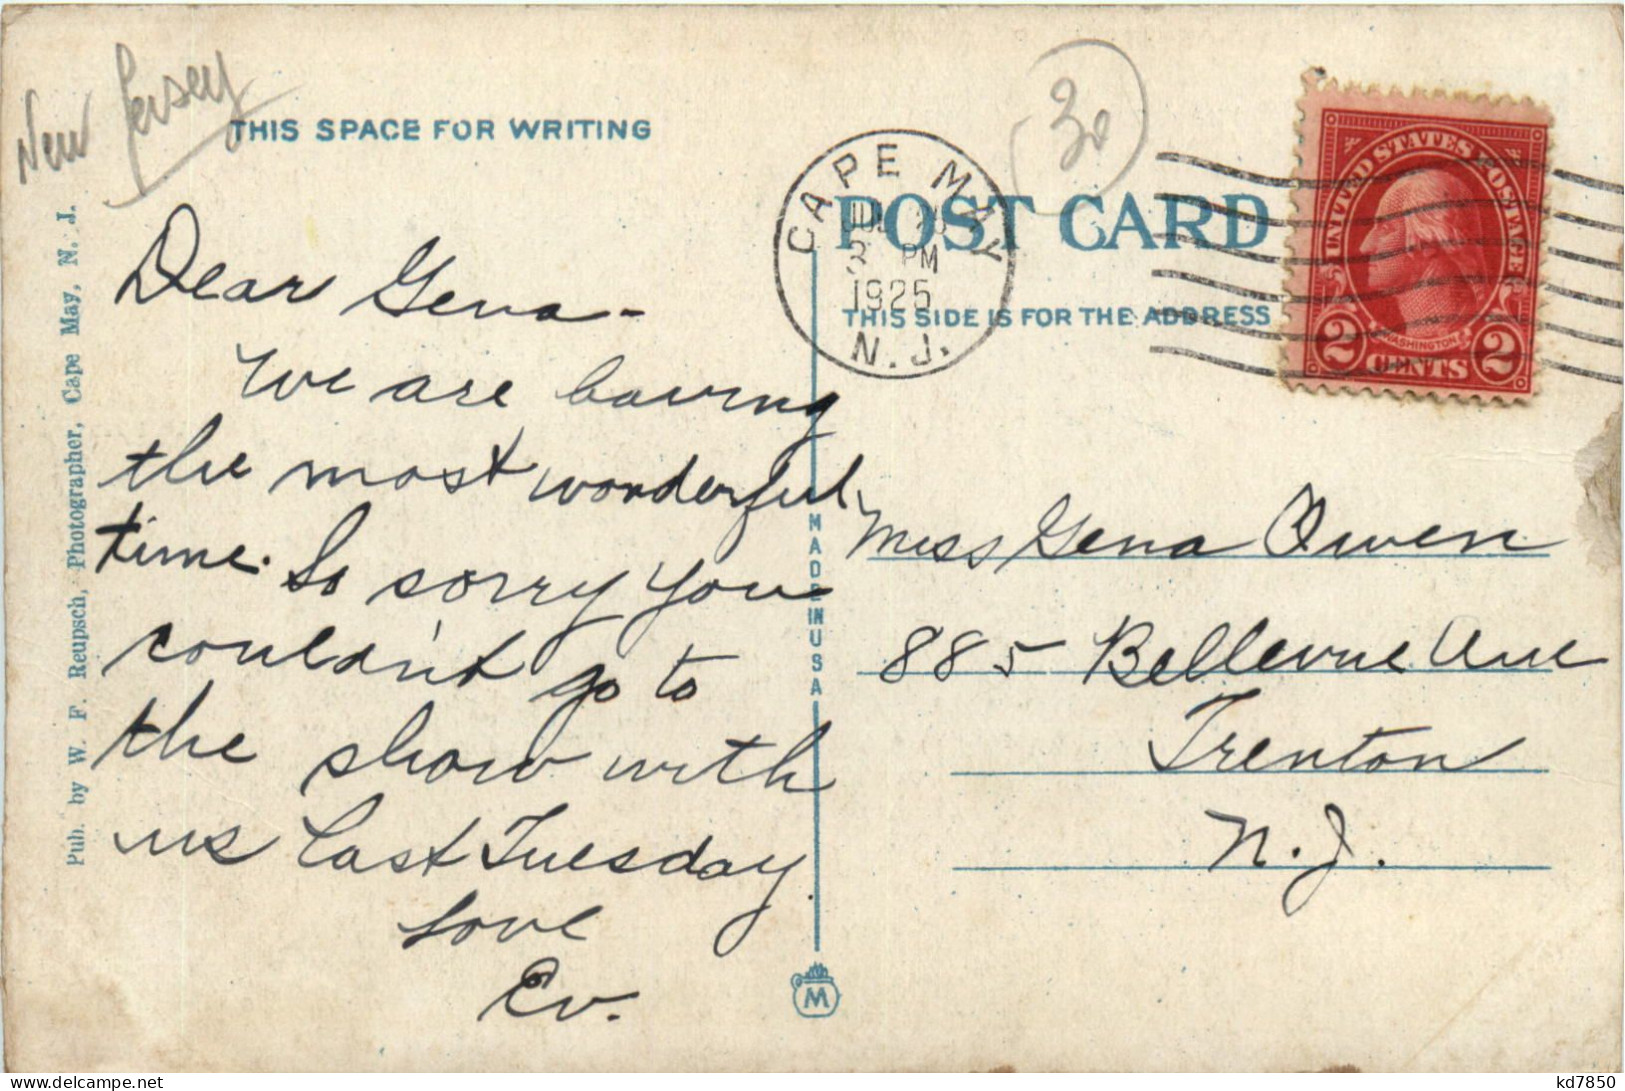 New Jersey
THIS SPACE FOR WRITING
Dear Gena-
We are having
the most wonderful
time. So sorry you
couldn't go to
the show with
us last Tuesday.
Love
Ev.
Pub. by W. F. Reupsch, Photographer, Cape May, N. J.
MADE IN USA
M
30
CAPE MAY
JUL
3 PM
1925
N.J.
POST CARD
THIS SIDE IS FOR THE ADDRESS
UNITED STATES POSTAGE
WASHINGTON
2 CENTS 2
Miss Gena Owen
885 Bellevue Ave
Trenton
N.J.
delcampe.net
kd7850